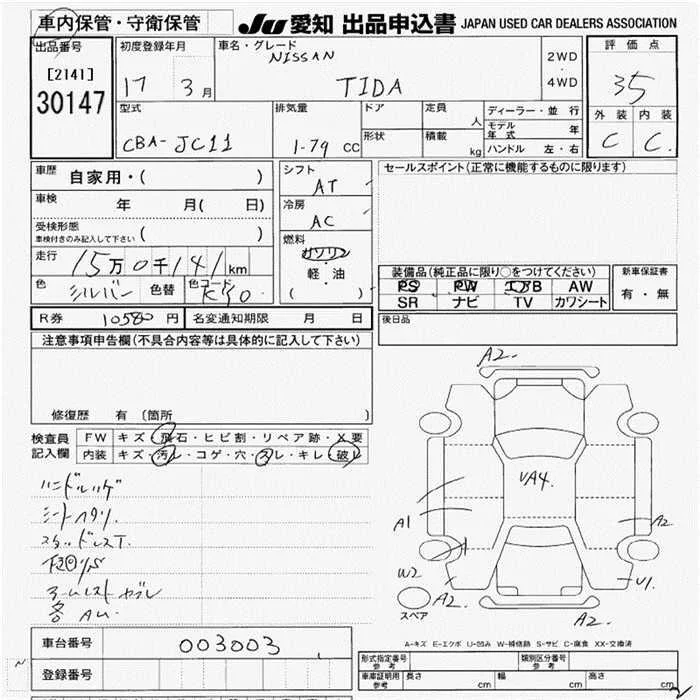 車内保管・守衛保管
JU 愛知 出品申込書 JAPAN USED CAR DEALERS ASSOCIATION
出品番号
[2141]
30147
初度登録年月
17 3月
車名・グレード
NISSAN
TIDA
2WD
・
4WD
評価点
35
外装 内装
C C
型式
CBA-JC11
排気量
1-79 CC
ドア
形状
定員 人
積載 kg
ディーラー・並行
モデル年式 年
ハンドル 左・右
車歴 自家用・( )
車検 年 月( 日)
受検形態
車検付きのみ記入して下さい ( )
走行 15万0千141km
色 シルバー 色替 色コード K30
シフト
AT
冷房
AC
燃料
ガソリン
・
軽・油
( )
セールスポイント(正常に機能するものに限ります)
装備品(純正品に限り○をつけてください)
PS PW エアB AW
SR ナビ TV カワシート
新車保証書
有・無
R券 10580円 名変通知期限 月 日
後日品
注意事項申告欄(不具合内容等は具体的に記入して下さい)
修復歴 有 〔箇所 〕
検査員記入欄
FW キズ・飛石・ヒビ割・リペア跡・X要
内装 キズ・汚レ・コゲ・穴・スレ・キレ・破レ
ハンドルハゲ
シートヘタリ.
各AU.
A2.
VA4.
A1
A2
W2
A2.
V1.
A2.
スペア
A-キズ E-エクボ U-凹み W-補修跡 S-サビ C-腐食 XX-交換済
車台番号 003003
登録番号
形式指定番号 参考
類別区分番号 参考
車庫証明用 参考 長さ cm 幅 cm 高さ cm